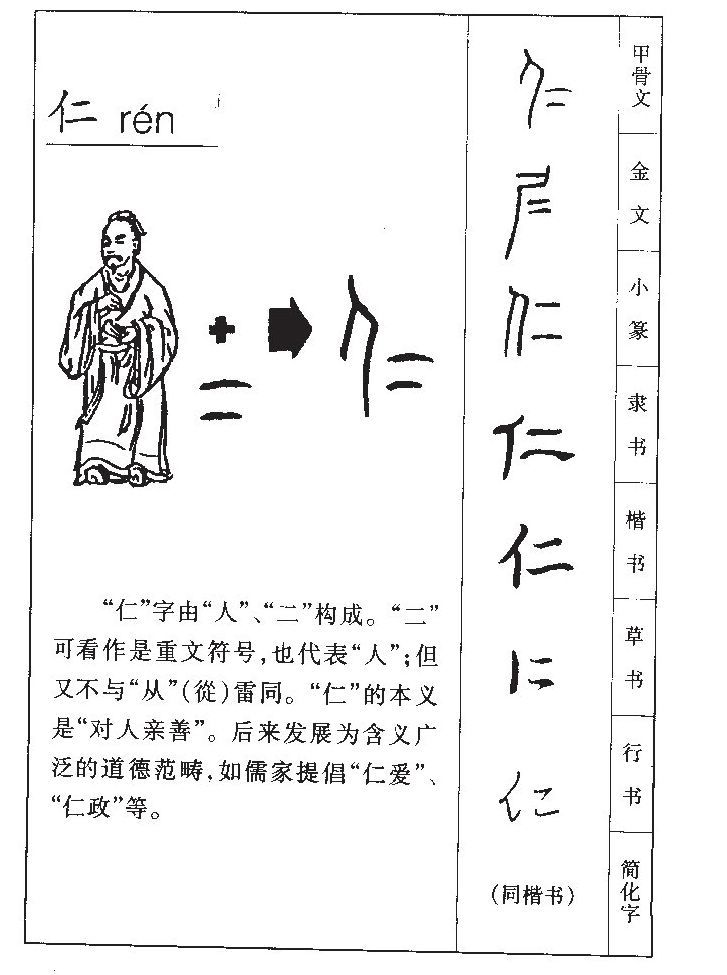 仁 rén
“仁”字由“人”、“二”构成。“二”
可看作是重文符号,也代表“人”;但
又不与“从”(從)雷同。“仁”的本义
是“对人亲善”。后来发展为含义广
泛的道德范畴,如儒家提倡“仁爱”、
“仁政”等。
仁 甲骨文
仁 金文
仁 小篆
仁 隶书
仁 楷书
仁 草书
仁 行书
(同楷书) 简化字